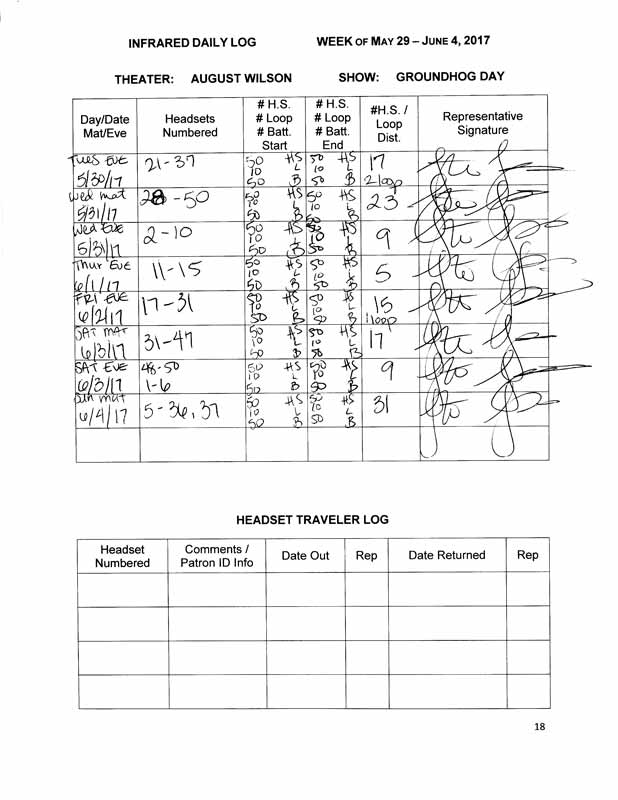 INFRARED DAILY LOG WEEK OF MAY 29 – JUNE 4, 2017
THEATER: AUGUST WILSON SHOW: GROUNDHOG DAY
Day/Date Mat/Eve Headsets Numbered # H.S. # Loop # Batt. Start # H.S. # Loop # Batt. End #H.S. / Loop Dist. Representative Signature
Tues Eve 5/30/17 21-37 50 HS 10 L 50 B 50 HS 10 L 50 B 17 2 loop
Wed mat 5/31/17 28-50 50 HS 10 L 50 B 50 HS 10 L 50 B 23
Wed Eve 5/31/17 2-10 50 HS 10 L 50 B 50 HS 10 L 50 B 9
Thur Eve 6/1/17 11-15 50 HS 10 L 50 B 50 HS 10 L 50 B 5
FRI EVE 6/2/17 17-31 50 HS 10 L 50 B 50 HS 10 L 50 B 15 1 loop
SAT MAT 6/3/17 31-47 50 HS 10 L 50 B 50 HS 10 L 50 B 17
SAT EVE 6/3/17 48-50 1-6 50 HS 10 L 50 B 50 HS 10 L 50 B 9
Sun mat 6/4/17 5-36, 37 50 HS 10 L 50 B 50 HS 10 L 50 B 31
HEADSET TRAVELER LOG
Headset Numbered Comments / Patron ID Info Date Out Rep Date Returned Rep
18